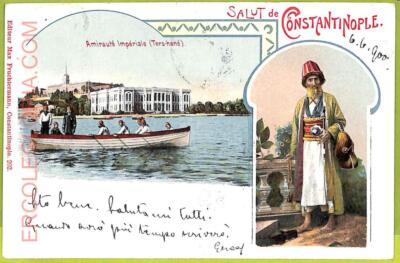 SALUT de CONSTANTINOPLE.
6.6.900
Amirauté Impériale (Ters-hané)
Editeur Max Fruchtermann, Constantinople. 202.
Sto bene. Salutami tutti.
Quando avrò più tempo scriverò.